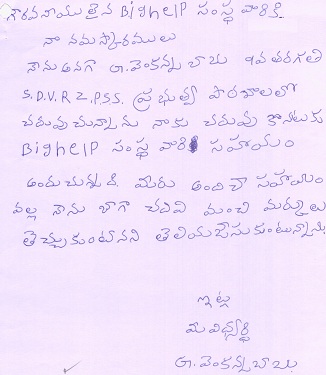 గౌరవనీయులైన BigHelP సంస్థ వారికి
నా నమస్కారములు
నేను అనగా G. వెంకన్న బాబు 9వ తరగతి
S.D.V.R Z.P.S.S. ప్రభుత్వ పాఠశాలలో
చదువుచున్నాను నాకు చదువు కొనుటకు
BigHelP సంస్థ వారి సహాయం
అందుచున్నది. మీరు అందించా సహాయం
వల్ల నేను బాగా చదివి మంచి మార్కులు
తెచ్చుకుంటానని తెలియజేసుకుంటున్నాను
ఇట్లు
మీ విధ్యార్థి
G. వెంకన్న బాబు.